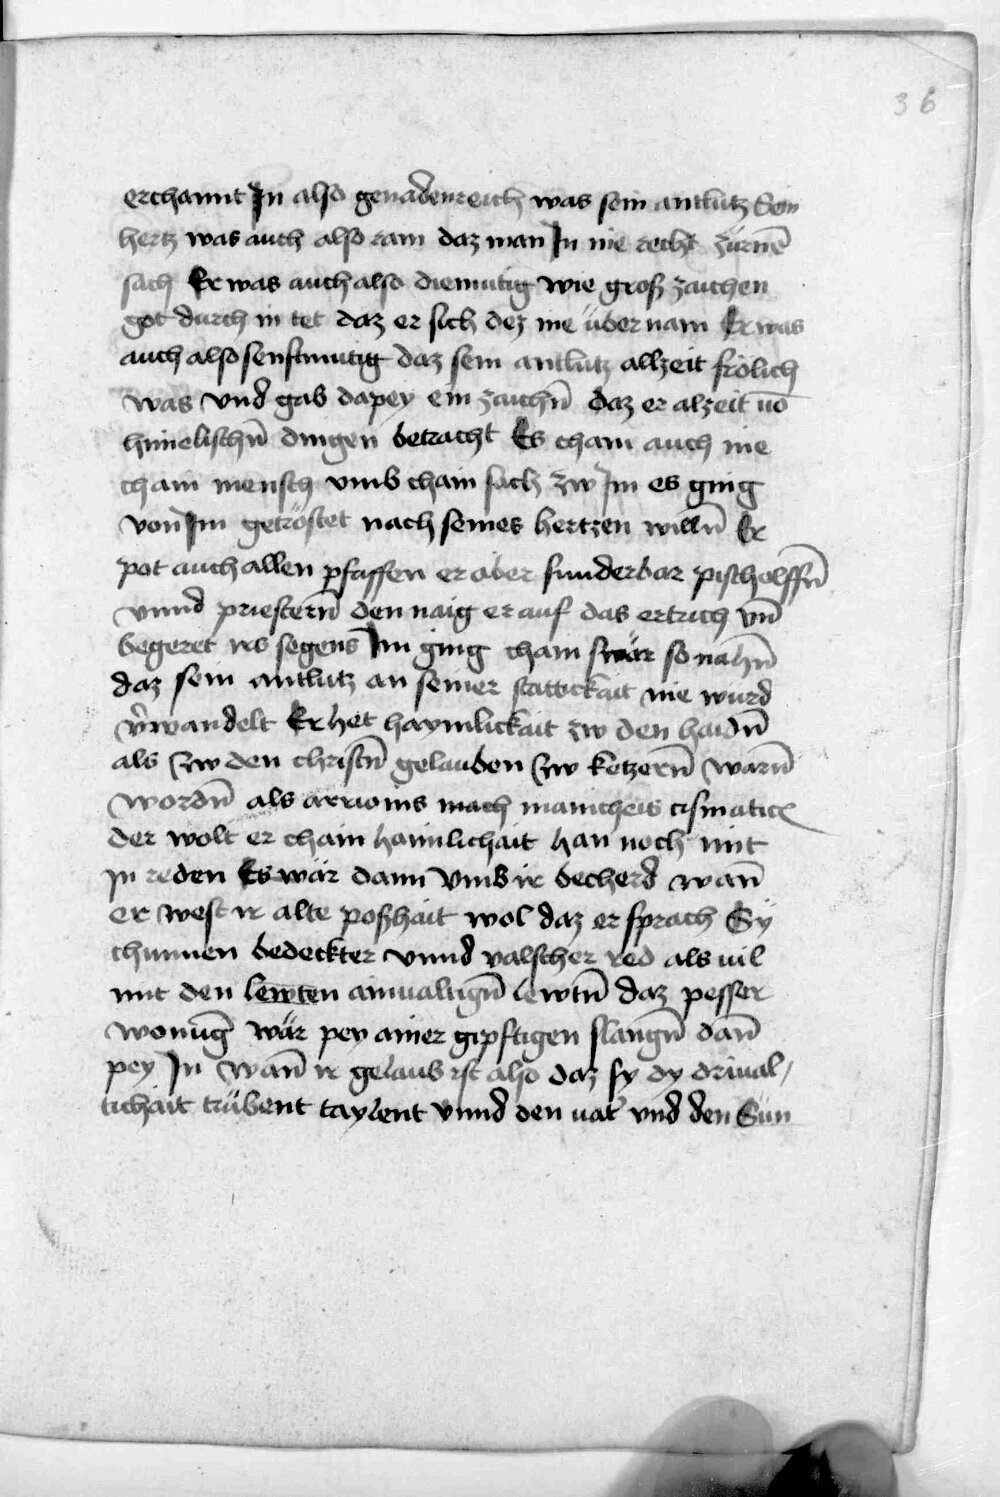 36
erchannt In also genadenreich was sein antlutz Sein
hertz was auch also rain daz man In nie recht zürnē
sach Er was auch also diemutig wie groß zaichen
got durch in tet daz er sich dez nie über nam Er was
auch also senftmutig daz sein antlutz allzeit frölich
was vnd gab dapey ein zaichn̄ daz er alzeit uō
himelischn̄ dingen betracht Es cham auch nie
chain mensch vmb chain sach zw Im es ging
von Im getröstet nach seines hertzen willn̄ Er
pot auch allen pfaffen er aber sunderbar pischolffn̄
vnnd priestern̄ den naig er auf das ertrich vn̄
begeret irs segens Im ging chain swär so nahn̄
daz sein antlutz an seiner stättickait nie wurd
v̄wandelt Er het haymlickait zw den haidn̄
als zw den christn̄ gelauben zw ketzern̄ warn̄
wordn̄ als arrioins mach manicheis cismatice
der wolt er chain haimlichait han noch mit
In reden Es wär dann vmb ir becherd wan̄
er west ir alte poßhait wol daz er sprach Sÿ
chunnen bedeckter vnnd valscher red als uil
mit den lewten ainualtign̄ lewtn̄ daz pesser
wonuḡ wär pey ainer gipftigen slangn̄ dan̄
pey In wan̄ ir gelaub ist also daz sy dy driual-
tichait trübent taylent vnnd den uat' vnd den Sun